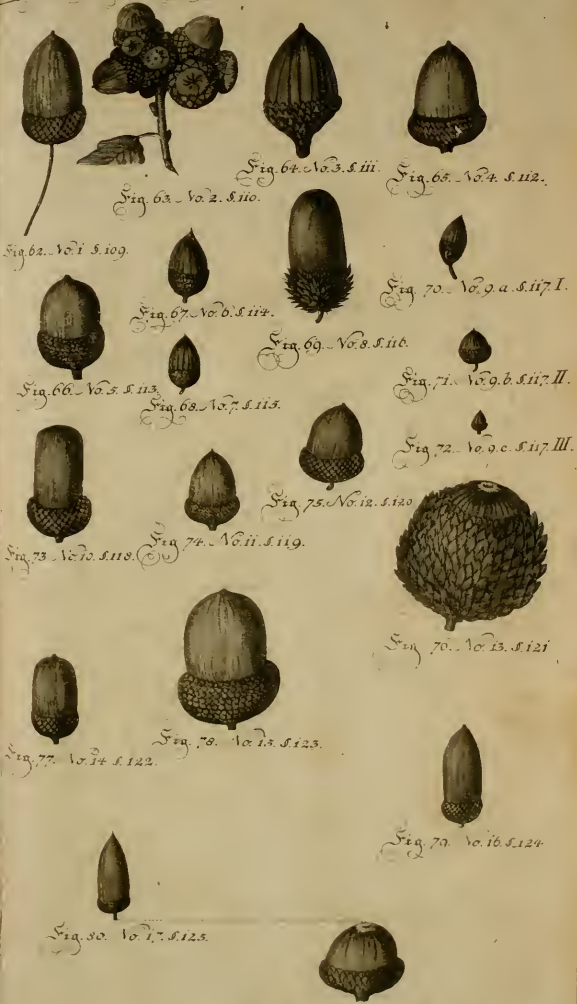 Fig. 62. No. 1 §. 109.
Fig. 63. No. 2. §. 110.
Fig. 64. No. 3. §. 111.
Fig. 65. No. 4. §. 112.
Fig. 66. No. 5. §. 113.
Fig. 67. No. 6. §. 114.
Fig. 68. No. 7. §. 115.
Fig. 69. No. 8. §. 116.
Fig. 70. No. 9. a. §. 117. I.
Fig. 71. No. 9. b. §. 117. II.
Fig. 72. No. 9. c. §. 117. III.
Fig. 73. No. 10. §. 118.
Fig. 74. No. 11. §. 119.
Fig. 75. No. 12. §. 120
Fig. 76. No. 13. §. 121
Fig. 77. No. 14 §. 122.
Fig. 78. No. 15. §. 123.
Fig. 79. No. 16. §. 124
Fig. 80. No. 17. §. 125.